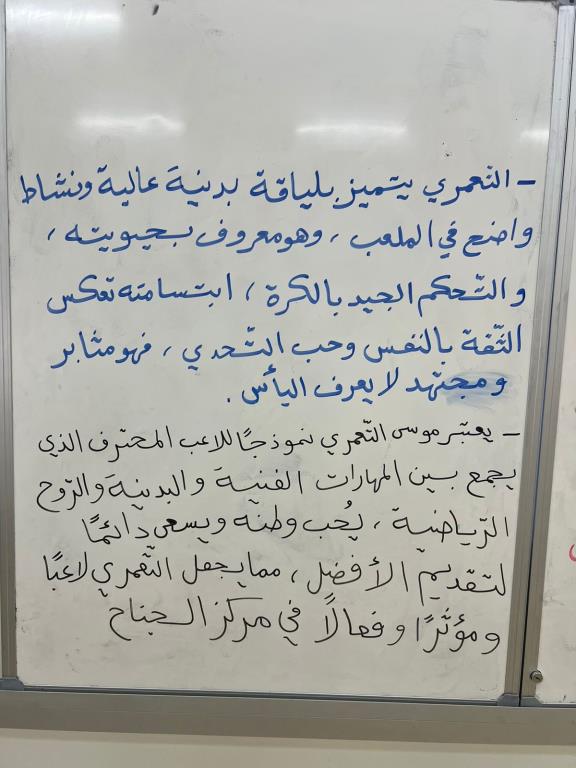 - التعمري يتميز بلياقة بدنية عالية ونشاط
واضح في الملعب ، وهو معروف بحيويته ،
والتّحكم الجيد بالكرة ، ابتسامته تعكس
الثّقة بالنفس وحب التّحدي ، فهو مثابر
ومجتهد لا يعرف اليأس .
- يعتبر موسى التّعمري نموذجًا للاعب المحترف الذي
يجمع بين المهارات الفنية والبدنية والرّوح
الرّياضية ، يُحب وطنه ويسعى دائمًا
لتقديم الأفضل ، مما يجعل التّعمري لاعبًا
ومؤثّرًا وفعالًا في مركز الجناح